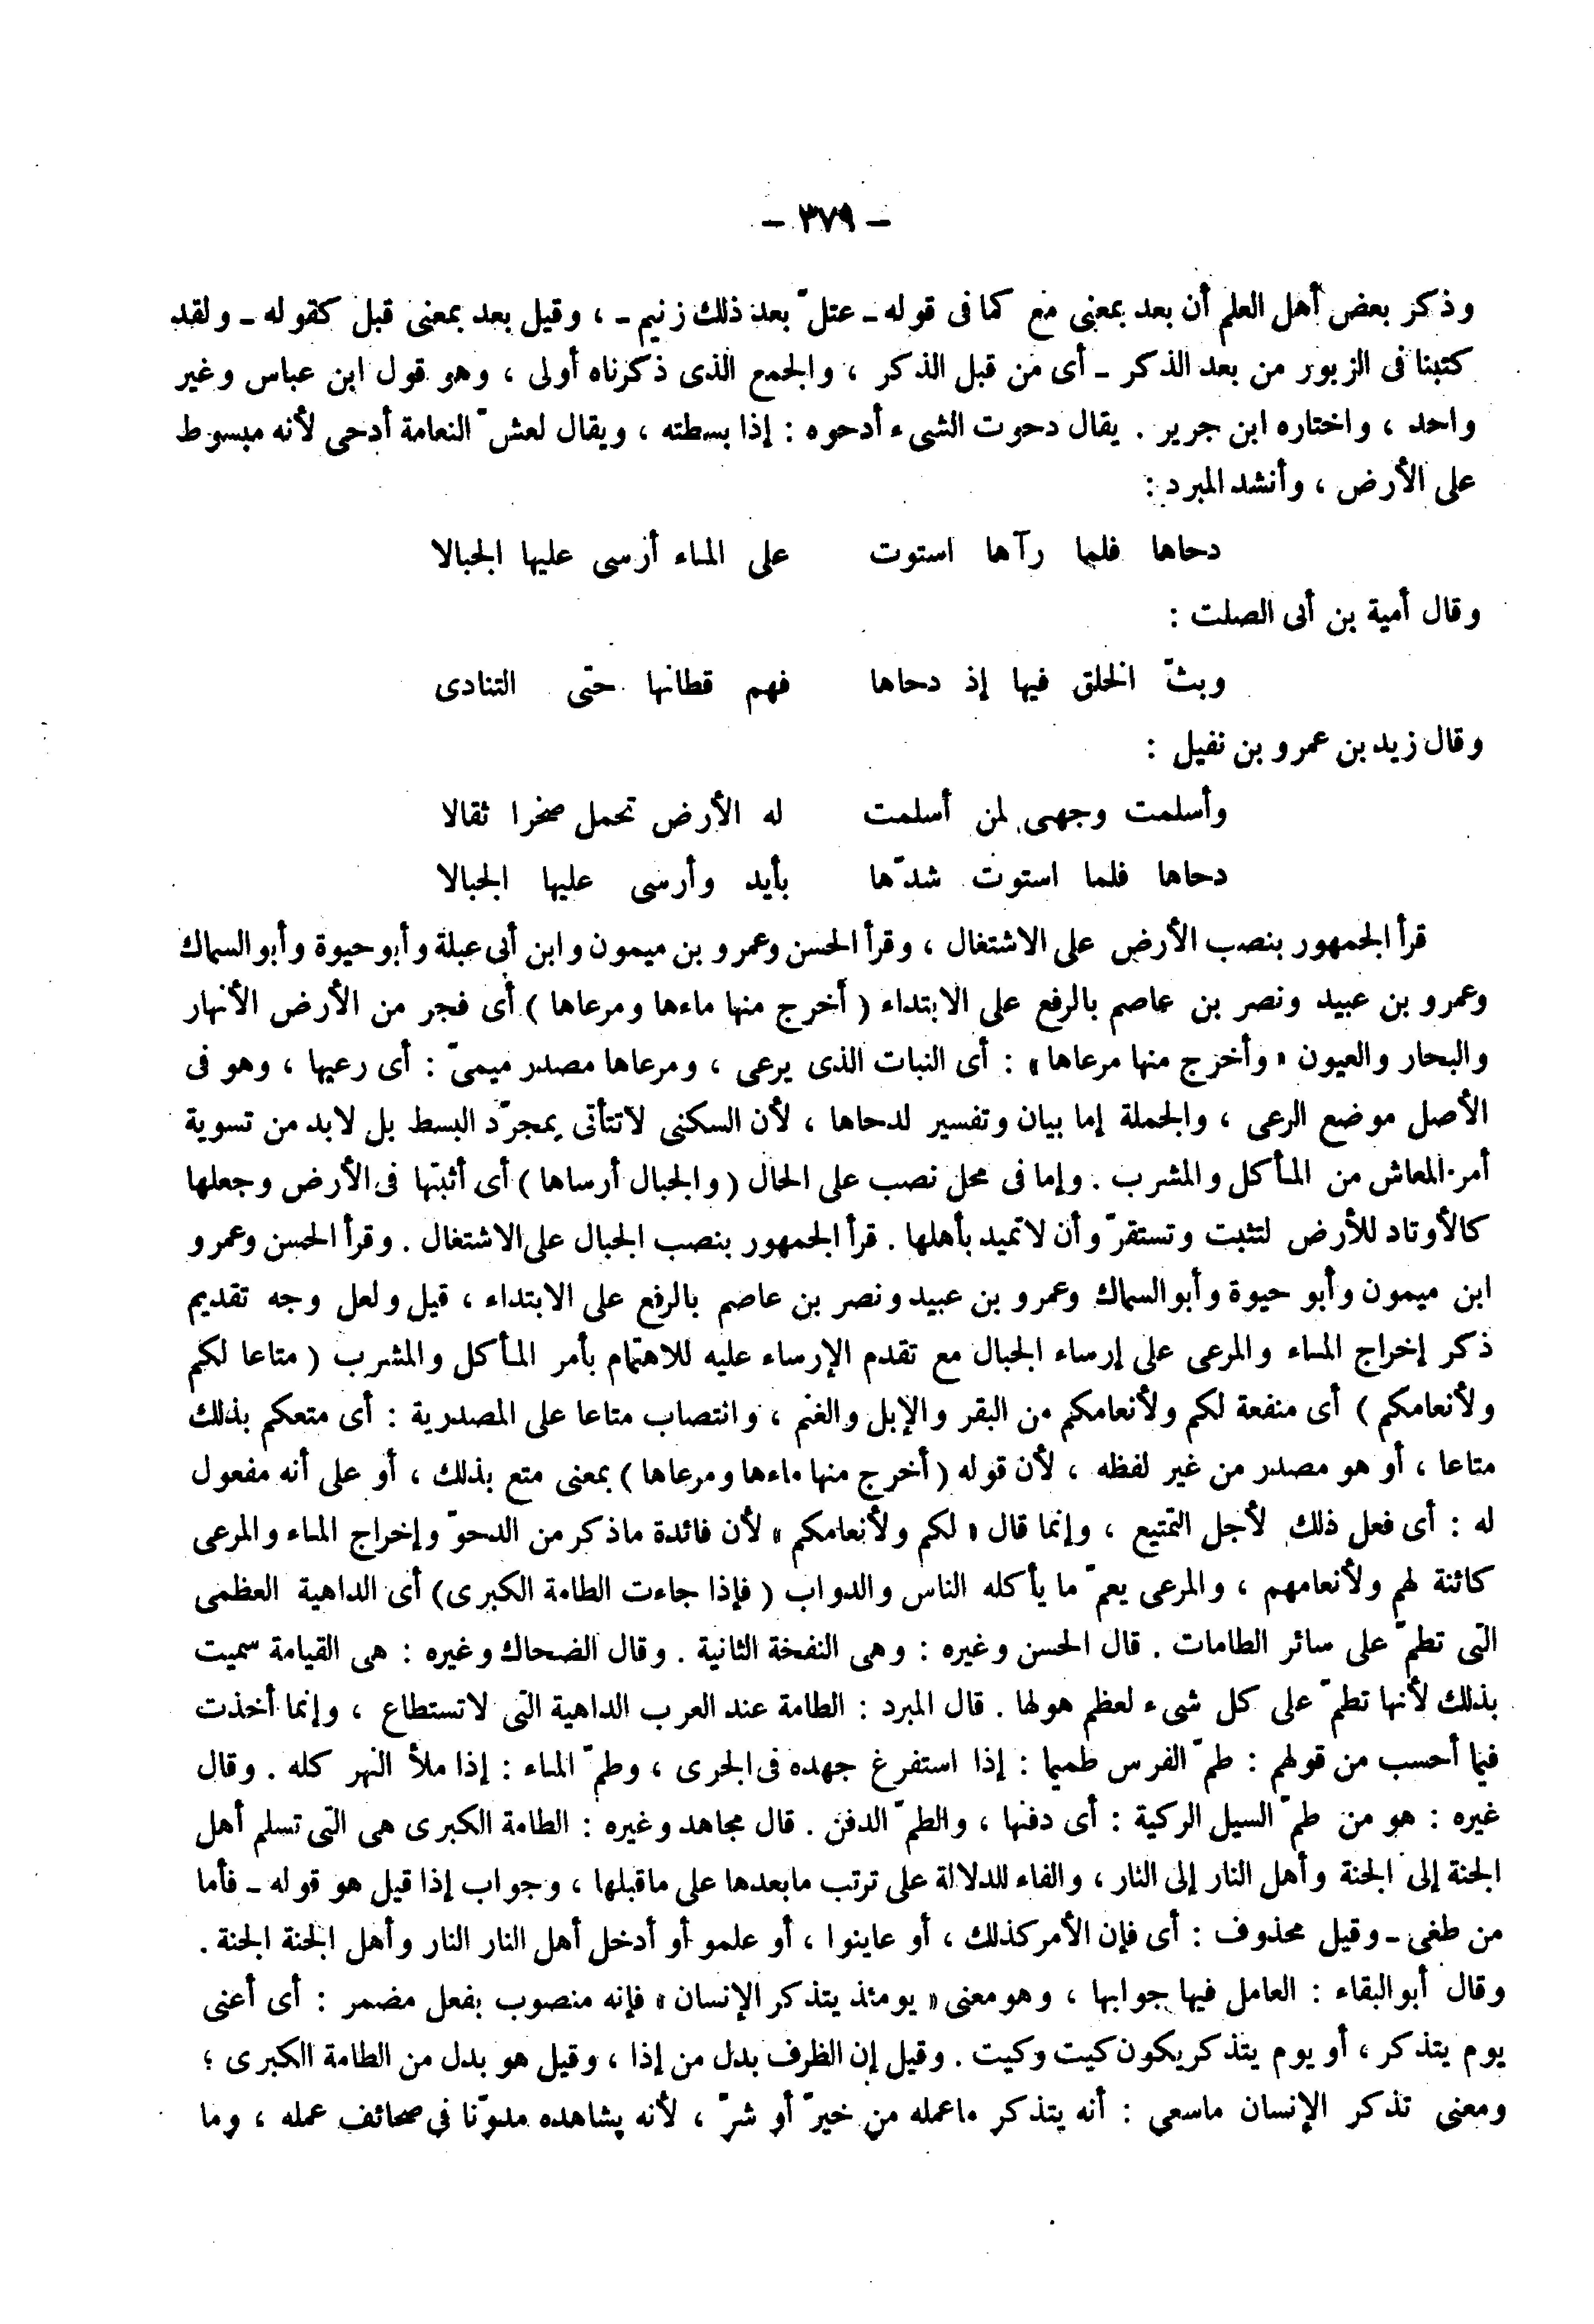 - ٣٧٩ -
وذكر بعض أهل العلم أن بعد بمعنى مع كما فى قوله ـ عتلّ بعد ذلك زنيم ـ ، وقيل بعد بمعنى قبل كقوله ـ ولقد
كتبنا فى الزبور من بعد الذكر ـ أى من قبل الذكر ، والجمع الذى ذكرناه أولى ، وهو قول ابن عباس وغير
واحد ، واختاره ابن جرير . يقال دحوت الشىء أدحوه : إذا بسطته ، ويقال لعشّ النعامة أدحى لأنه مبسوط
على الأرض ، وأنشد المبرد :
دحاها فلما رآها استوت على الماء أرسى عليها الجبالا
وقال أمية بن أبى الصلت :
وبثّ الخلق فيها إذ دحاها فهم قطانها حتى التنادى
وقال زيد بن عمرو بن نفيل :
وأسلمت وجهى لمن أسلمت له الأرض تحمل صخرا ثقالا
دحاها فلما استوت شدّها بأيد وأرسى عليها الجبالا
قرأ الجمهور بنصب الأرض على الاشتغال ، وقرأ الحسن وعمرو بن ميمون وابن أبى عبلة وأبو حيوة وأبو السماك
وعمرو بن عبيد ونصر بن عاصم بالرفع على الابتداء ( أخرج منها ماءها ومرعاها ) أى فجر من الأرض الأنهار
والبحار والعيون « وأخرج منها مرعاها » : أى النبات الذى يرعى ، ومرعاها مصدر ميمىّ : أى رعيها ، وهو فى
الأصل موضع الرعى ، والجملة إما بيان وتفسير لدحاها ، لأن السكنى لا تتأتى بمجرّد البسط بل لابد من تسوية
أمر المعاش من المأكل والمشرب . وإما فى محل نصب على الحال ( والجبال أرساها ) أى أثبتها فى الأرض وجعلها
كالأوتاد للأرض لتثبت وتستقرّ وأن لا تميد بأهلها . قرأ الجمهور بنصب الجبال على الاشتغال . وقرأ الحسن وعمرو
ابن ميمون وأبو حيوة وأبو السماك وعمرو بن عبيد ونصر بن عاصم بالرفع على الابتداء ، قيل ولعل وجه تقديم
ذكر إخراج الماء والمرعى على إرساء الجبال مع تقدم الإرساء عليه للاهتمام بأمر المأكل والمشرب ( متاعا لكم
ولأنعامكم ) أى منفعة لكم ولأنعامكم من البقر والإبل والغنم ، وانتصاب متاعا على المصدرية : أى متعكم بذلك
متاعا ، أو هو مصدر من غير لفظه ، لأن قوله ( أخرج منها ماءها ومرعاها ) بمعنى متع بذلك ، أو على أنه مفعول
له : أى فعل ذلك لأجل التمتيع ، وإنما قال « لكم ولأنعامكم » لأن فائدة ماذكر من الدحوّ وإخراج الماء والمرعى
كائنة لهم ولأنعامهم ، والمرعى يعمّ ما يأكله الناس والدواب ( فإذا جاءت الطامة الكبرى ) أى الداهية العظمى
التى تطمّ على سائر الطامات . قال الحسن وغيره : وهى النفخة الثانية . وقال الضحاك وغيره : هى القيامة سميت
بذلك لأنها تطمّ على كل شىء لعظم هولها . قال المبرد : الطامة عند العرب الداهية التى لا تستطاع ، وإنما أخذت
فيما أحسب من قولهم : طمّ الفرس طميما : إذا استفرغ جهده فى الجرى ، وطمّ الماء : إذا ملأ النهر كله . وقال
غيره : هو من طمّ السيل الركية : أى دفنها ، والطمّ الدفن . قال مجاهد وغيره : الطامة الكبرى هى التى تسلم أهل
الجنة إلى الجنة وأهل النار إلى النار ، والفاء للدلالة على ترتب مابعدها على ماقبلها ، وجواب إذا قيل هو قوله ـ فأما
من طغى ـ وقيل محذوف : أى فإن الأمر كذلك ، أو عاينوا ، أو علمو أو أدخل أهل النار النار وأهل الجنة الجنة .
وقال أبو البقاء : العامل فيها جوابها ، وهو معنى « يومئذ يتذكر الإنسان » فإنه منصوب بفعل مضمر : أى أعنى
يوم يتذكر ، أو يوم يتذكر يكون كيت وكيت . وقيل إن الظرف بدل من إذا ، وقيل هو بدل من الطامة الكبرى ؛
ومعنى تذكر الإنسان ماسعى : أنه يتذكر ماعمله من خيرّ أو شرّ ، لأنه يشاهده مدوّنا فى صحائف عمله ، وما